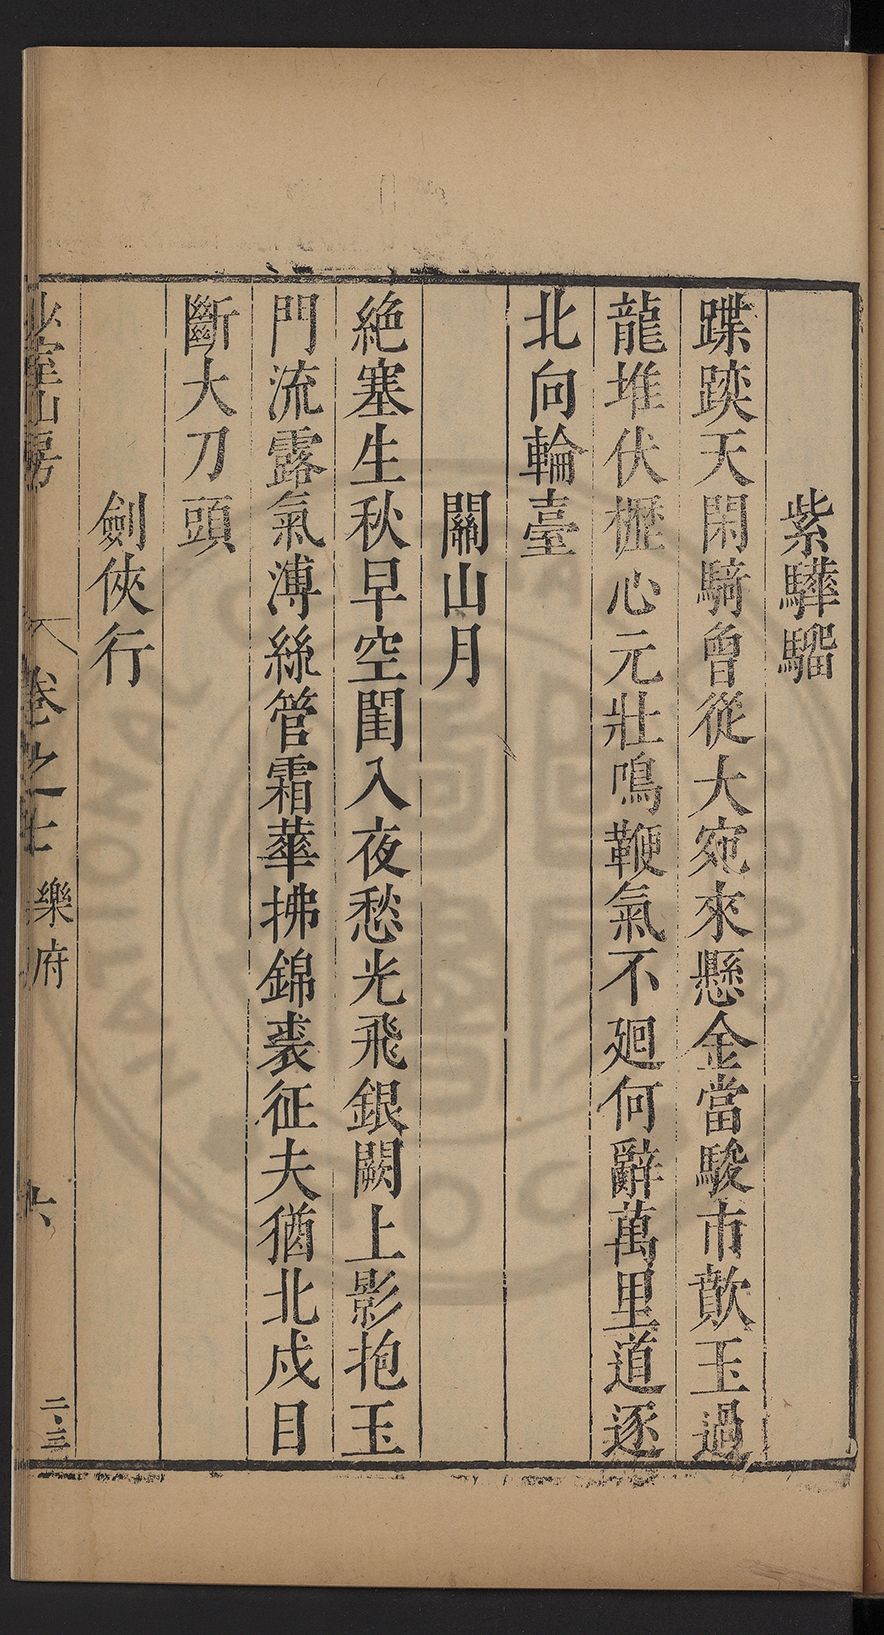 紫驊騮
蹀䠗天閑騎曾從大宛來懸金當駿市歕玉過
龍堆伏櫪心元壯鳴鞭氣不廻何辭萬里道逐
北向輪臺
關山月
絶塞生秋早空閨入夜愁光飛銀闕上影抱玉
門流露氣溥絲管霜華拂錦裘征夫猶北戍目
斷大刀頭
劍俠行
少室山房
卷之七
樂府
六
二、三